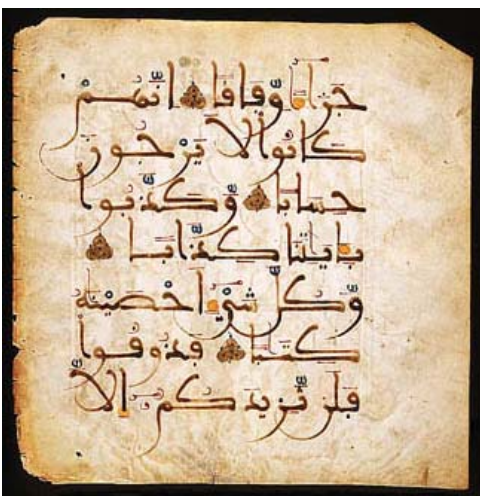 جَزَآءً وِّفَاقًا اِنَّهُمْ
كَانُوا لَا يَرْجُونَ
حِسَابًا وَّكَذَّبُوا
بِـَٔايَٰتِنَا كِذَّابًا
وَّكُلَّ شَيْءٍ اَحْصَيْنَٰهُ
كِتَٰبًا فَذُوقُوا
فَلَن نَّزِيدَكُمُ إِلَّا